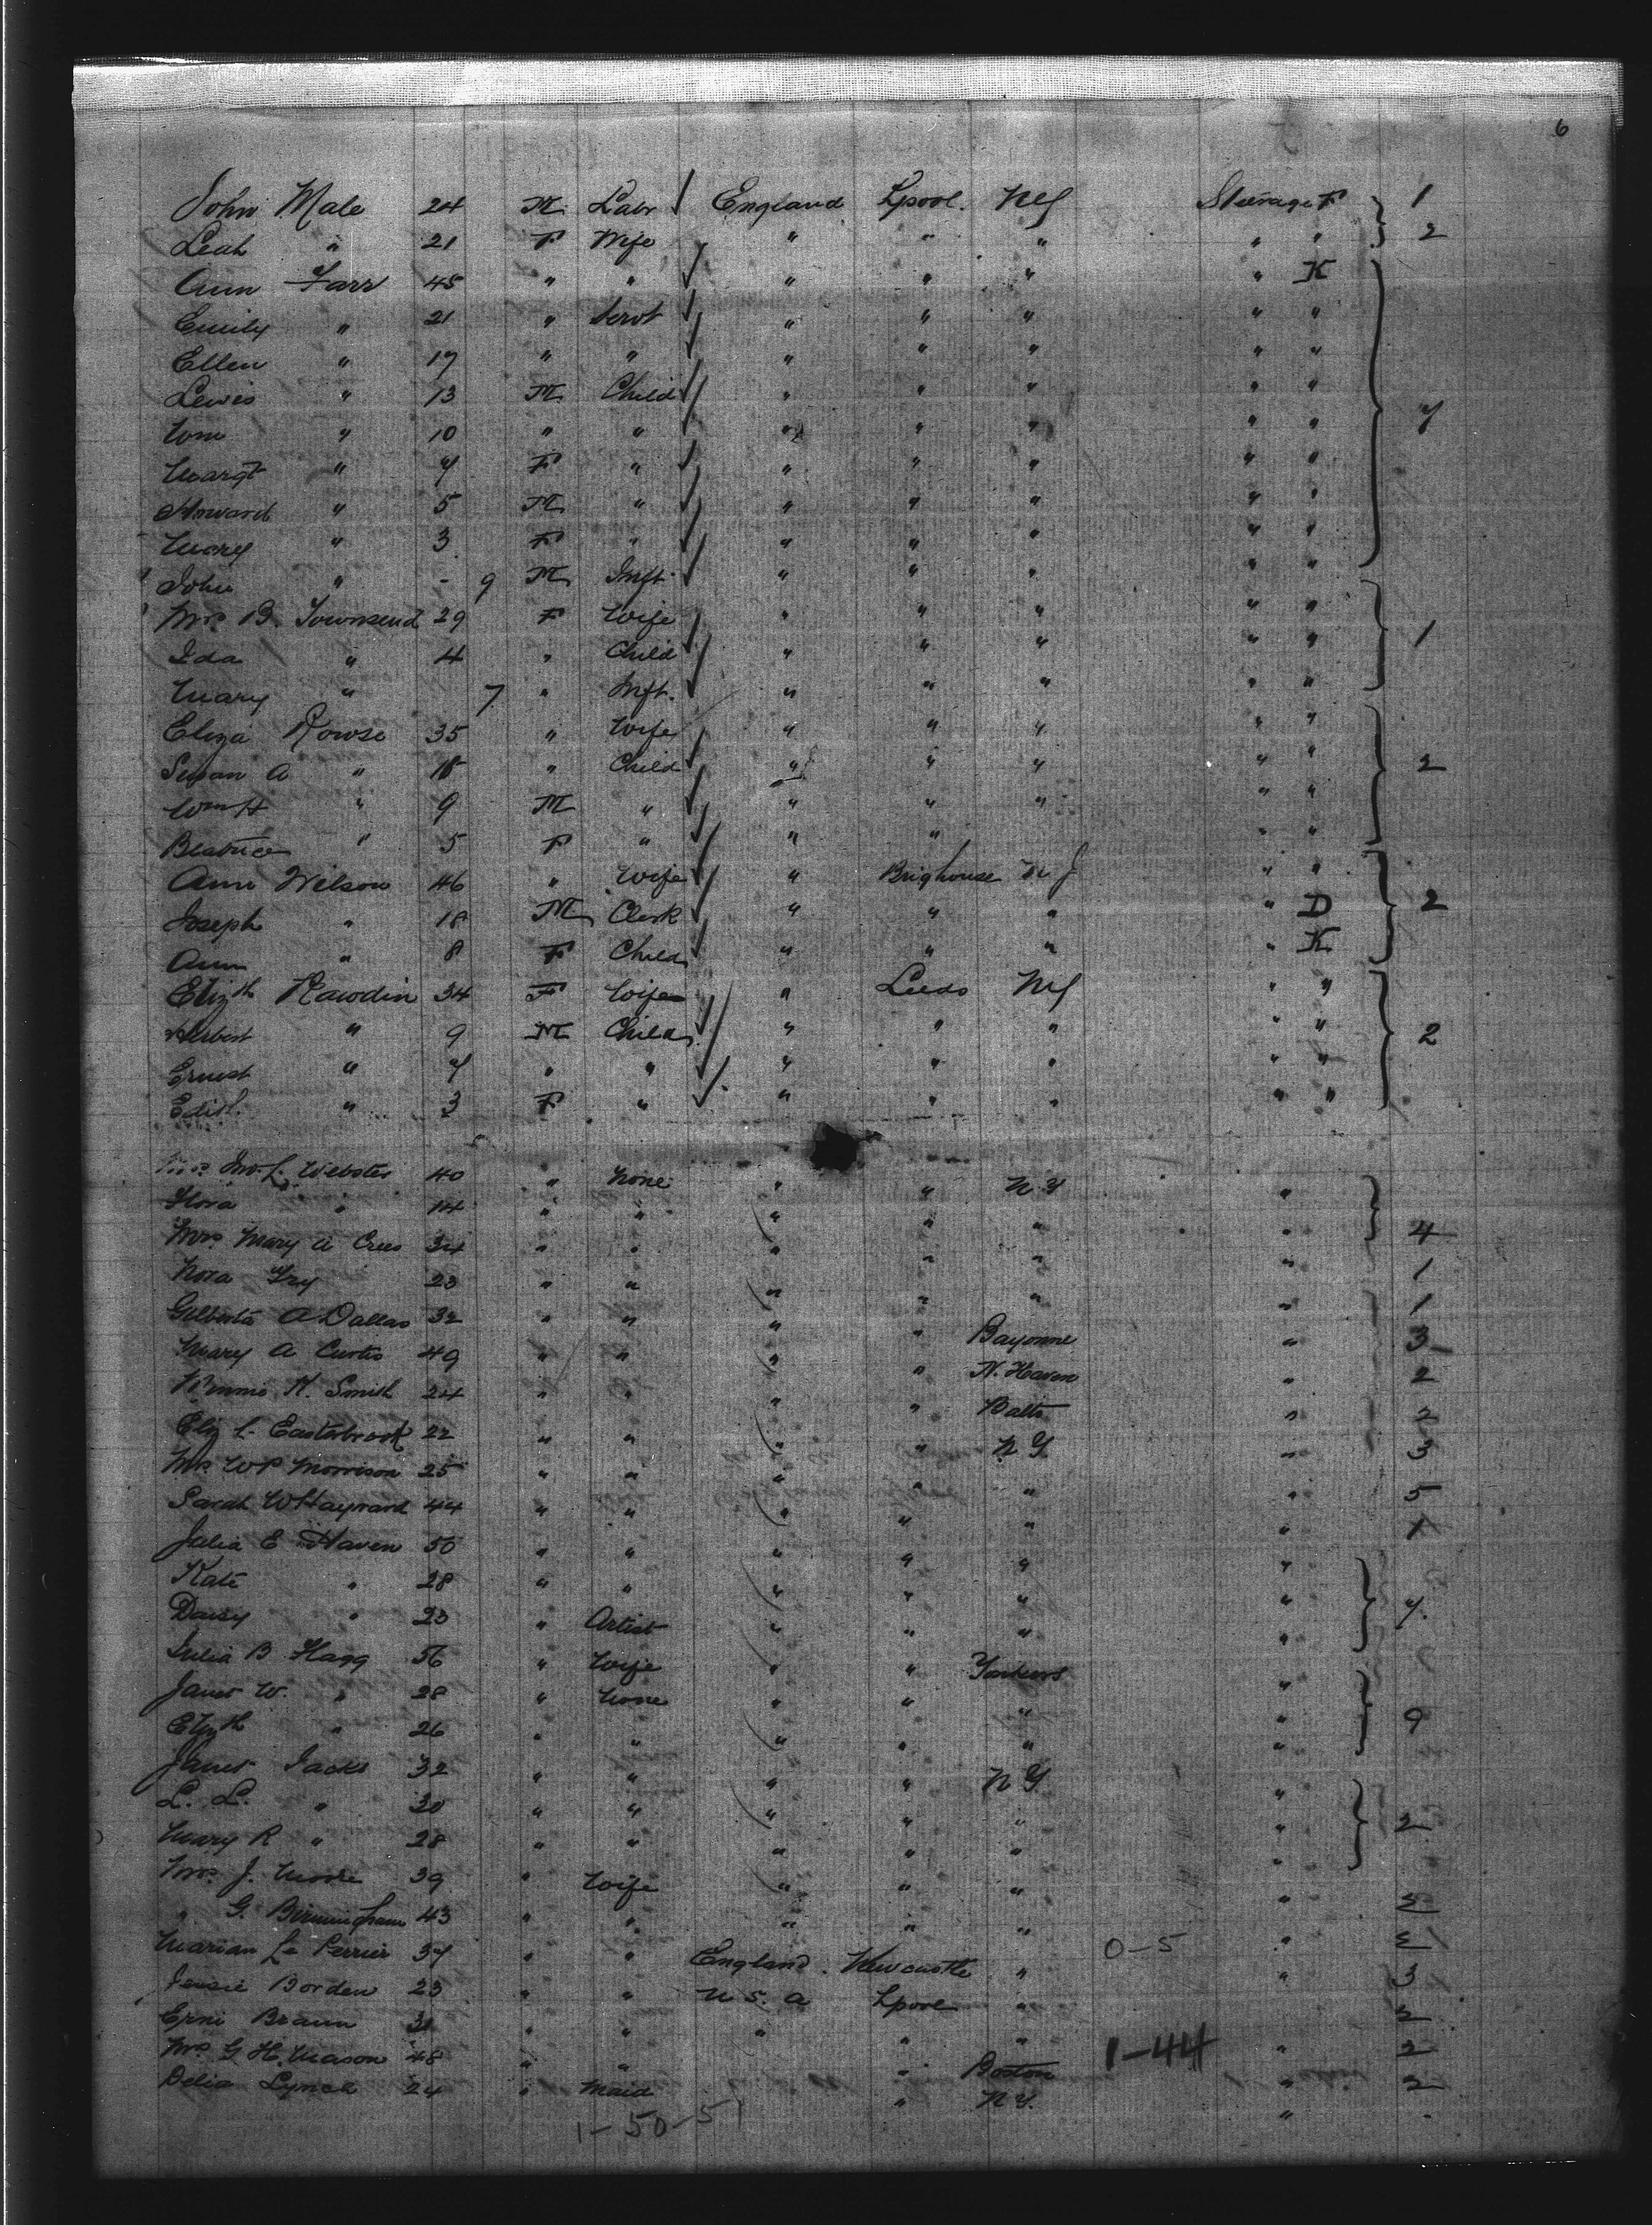 6
John Male 24 M Labr England Lpool. NY Steerage F 1
Leah " 21 F Wife " " " " " 2
Ann Farr 45 " " " " " " K
Emily " 21 " Servt " " " " "
Ellen " 17 " " " " " " "
Lewis " 13 M Child " " " " "
Wm " 10 " " " " " " " 7
Margt " 7 F " " " " " "
Howard " 5 M " " " " " "
Mary " 3 F " " " " " "
John " - 9 M Inft. " " " " "
Mrs B. Townsend 29 F Wife " " " " "
Ida " 4 " Child " " " " " 1
Mary " 7 " Inft. " " " " "
Eliza Rowse 35 " Wife " " " " "
Susan A " 18 " Child " " " " " 2
Wm H " 9 M " " " " " "
Beatrice " 5 F " " " " "
Ann Wilson 46 " Wife " Brighouse N J " "
Joseph " 18 M Clerk " " " " D 2
Ann " 8 F Child " " " " K
Elizth Rawdin 34 F Wife " Leeds NY " "
Herbert " 9 M Child " " " " " 2
Ernest " 7 " " " " " " "
Edith " 3 F " " " " " "
Mrs Jno. L. Webster 40 " None " " N Y "
Flora " 14 " " " " " " 4
Mrs Mary A Crees 34 " " " " " " 1
Nora Fry 23 " " " " " " 1
Gilberta A. Dallas 32 " " " " Bayonne " 3
Mary A Curtis 49 " " " " N. Haven " 2
Minnie K. Smith 24 " " " " Balto " 2
Eliz L. Easterbrook 22 " " " " N Y " 3
Mrs W P Morrison 25 " " " " " " 5
Sarah W Hayward 44 " " " " " " 1
Julia E Haven 50 " " " " " "
Kate " 28 " " " " " " 7.
Daisy " 23 " Artist " " " "
Julia B Flagg 56 " Wife " " Yonkers "
Janet W. " 28 " None " " " " 9
Elizth " 26 " " " " " "
Janet Jacks 32 " " " " N Y "
L. L. " 30 " " " " " " 2
Mary R " 28 " " " " " "
Mrs J. Moore 39 " Wife " " " " 2
" G. Birmingham 43 " " " " " 0-5 " 2
Marian Le Perrier 37 " " England. Newcastle " " 3
Jessie Borden 23 " " U S. A Lpool " " 2
Erni Braun 31 " " " " " 1-44 " 2
Mrs G H. Mason 48 " " " Boston " 2
Delia Lynch 24 " Maid " N Y. "
1-50-51